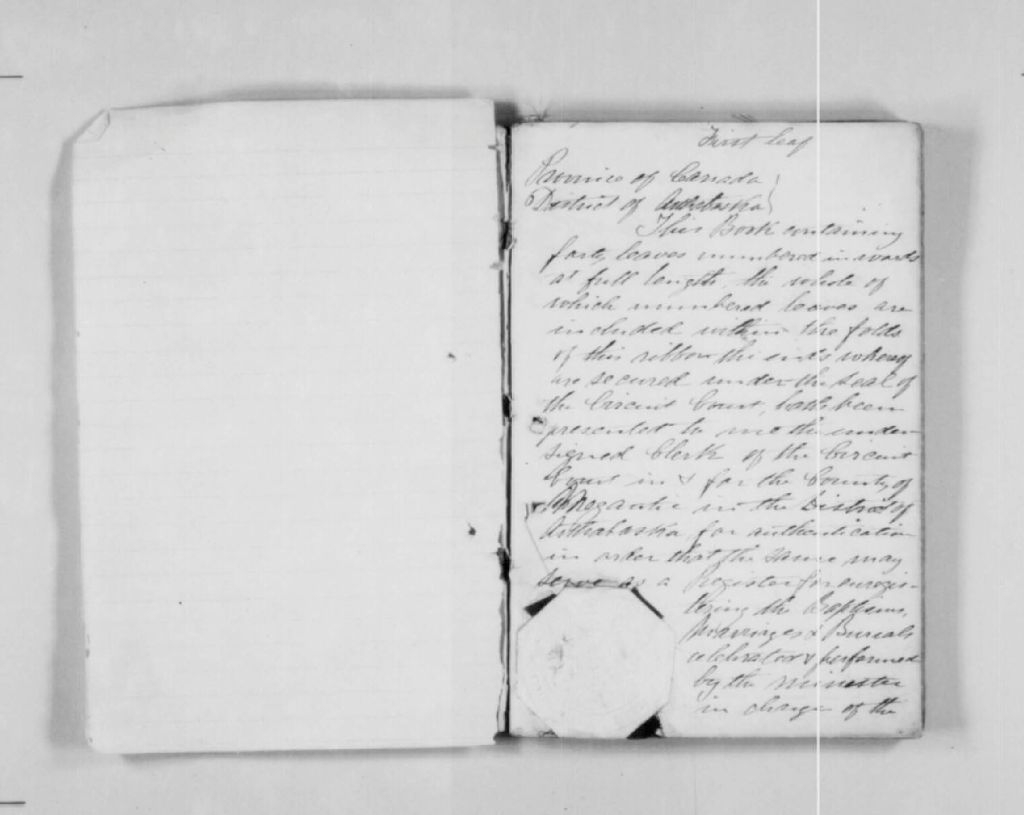 First leaf
Province of Canada
District of Arthabaska
This Book containing
forty leaves numbered in words
at full length, the whole of
which numbered leaves are
included within the folds
of this ribbon the ends whereof
are secured under the seal of
the Circuit Court, hath been
presented to me the under
signed Clerk of the Circuit
Court in & for the County of
Megantic in the District of
Arthabaska, for authentication
in order that the same may
serve as a Register for enregis-
tering the Baptisms,
Marriages & Burials
celebrated & performed
by the minister
in charge of the